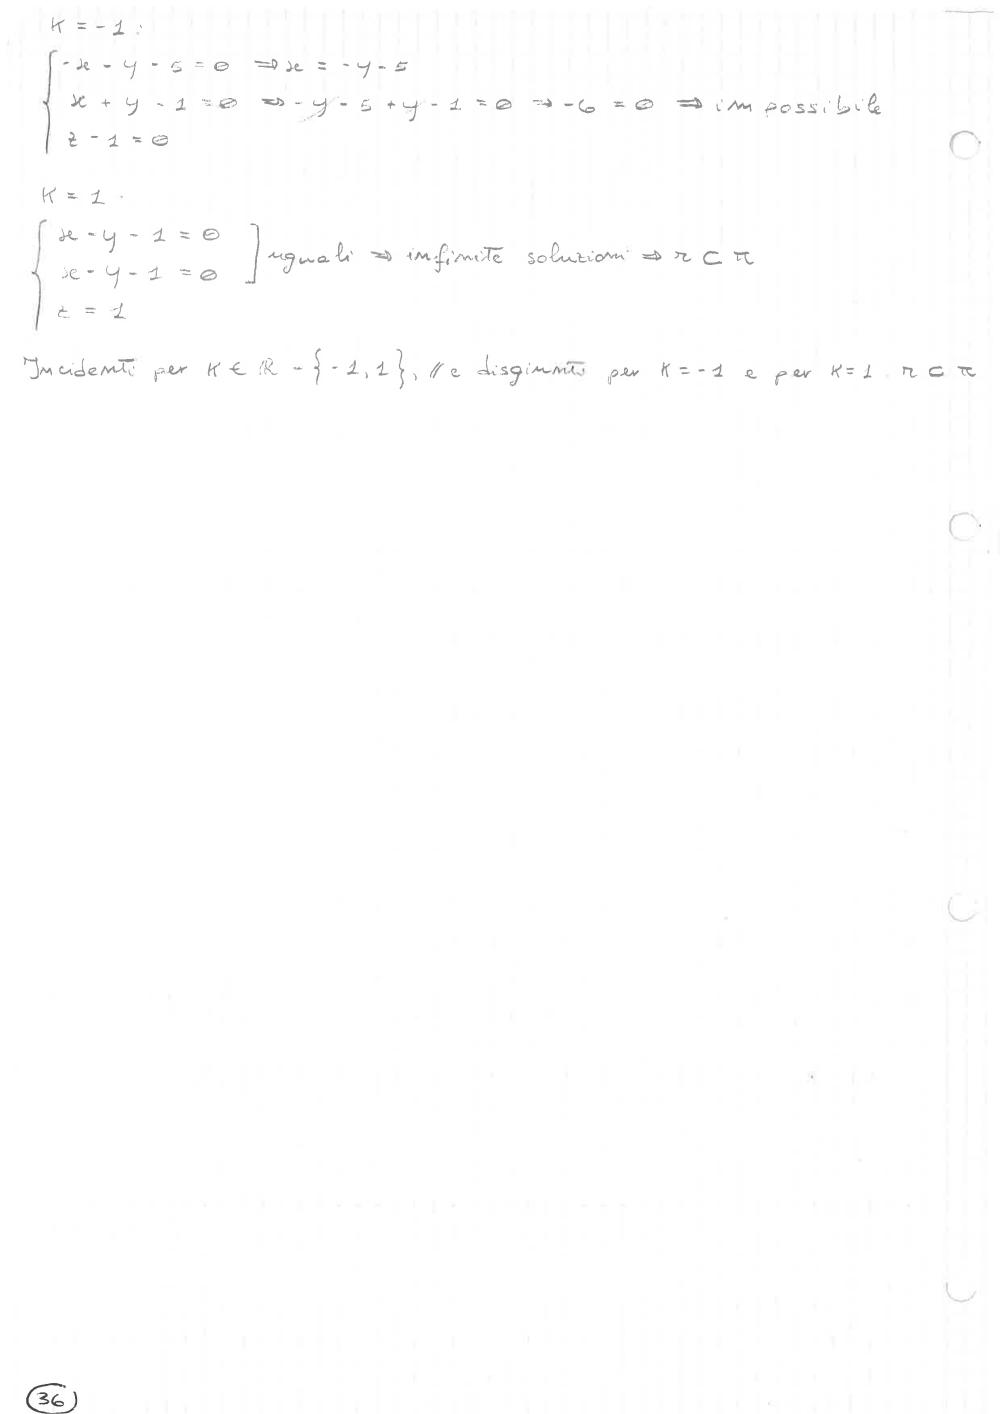 K = -1:
-x - y - 5 = 0 ⇒ x = -y - 5
x + y - 1 = 0 ⇒ -y - 5 + y - 1 = 0 → -6 = 0 ⇒ impossibile
z - 1 = 0
K = 1.
x - y - 1 = 0
x - y - 1 = 0 ] uguali ⇒ infinite soluzioni ⇒ r ⊂ π
z = 1
Incidenti per K ∈ ℝ - {-1, 1}, // e disgiunti per K = -1 e per K = 1 r ⊂ π
36